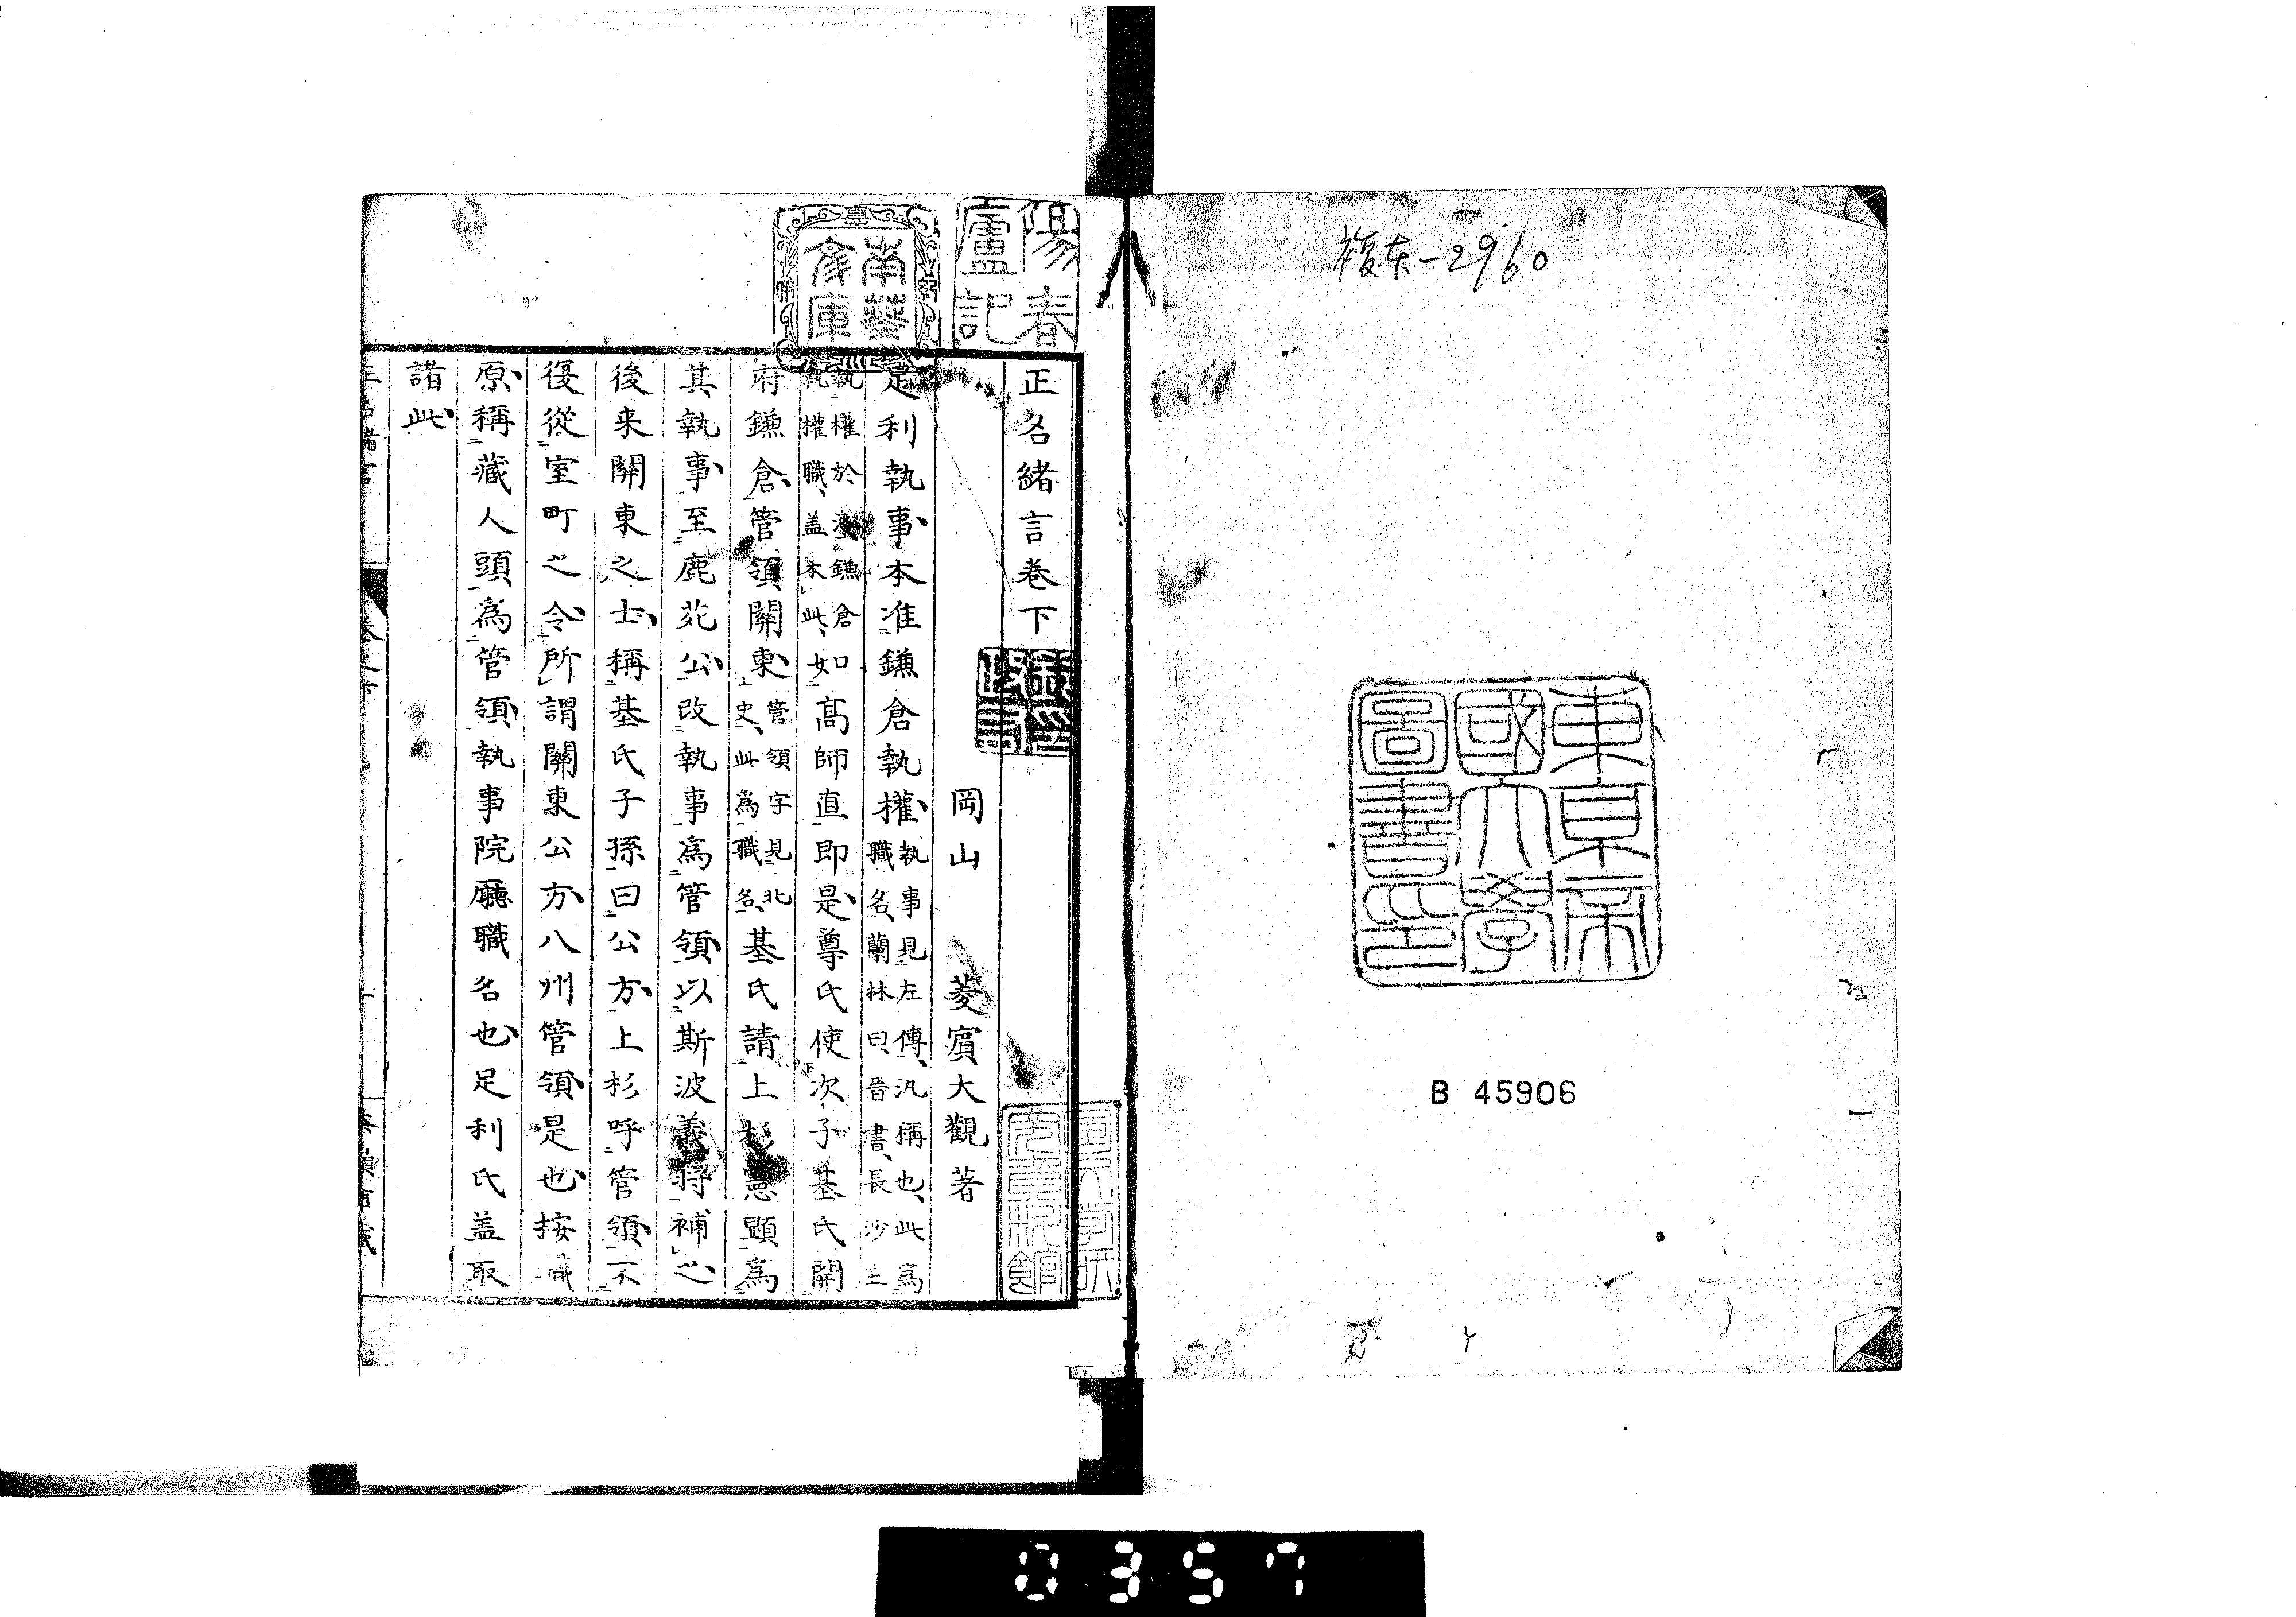 複本-2960
東京帝
國大學
圖書印
B 45906
陽春
廬記
南葵
文庫
正名緒言巻下
岡山 菱賓大觀著
足利執事本准鎌倉執權執事見左傳、汎稱也、此爲職名、蘭林曰、晉書、長沙王
執權於鎌倉如執權職、盖本此、如髙師直即是、尊氏使次子基氏開
府鎌倉管領關東、管領字見北史、此爲職名、基氏請上杉憲顕爲
其執事至鹿苑公改執事爲管領以斯波義将補之
後来關東之士稱基氏子孫曰公方上杉呼管領不
復從室町之令所謂關東公方八州管領是也按職
原稱藏人頭爲管領執事院廳職名也足利氏盖取
諸此
0357